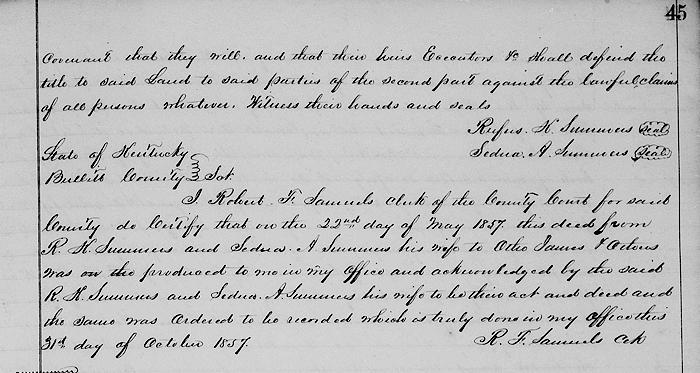 45
Covenant that they will. and that their heirs Executors &c shall defend the
title to said Land to said parties of the second part against the lawful claims
of all persons whatever. Witness their hands and seals
Rufus. H. Summers Seal
Sedna. A. Summers Seal
State of Kentucky
Bullitt County Sct.
I Robert. F. Samuels clerk of the County Court for said
County do Certify that on the 22nd day of May 1857. this deed from
R. H. Summers and Sedna. A Summers his wife to Otho James &
was on the produced to me in my Office and acknowledged by the said
R. H. Summers and Sedna. A. Summers his wife to be their act and deed and
the same was Ordered to be recorded which is truly done in my Office this
31st day of October 1857.
R. F. Samuels Clk